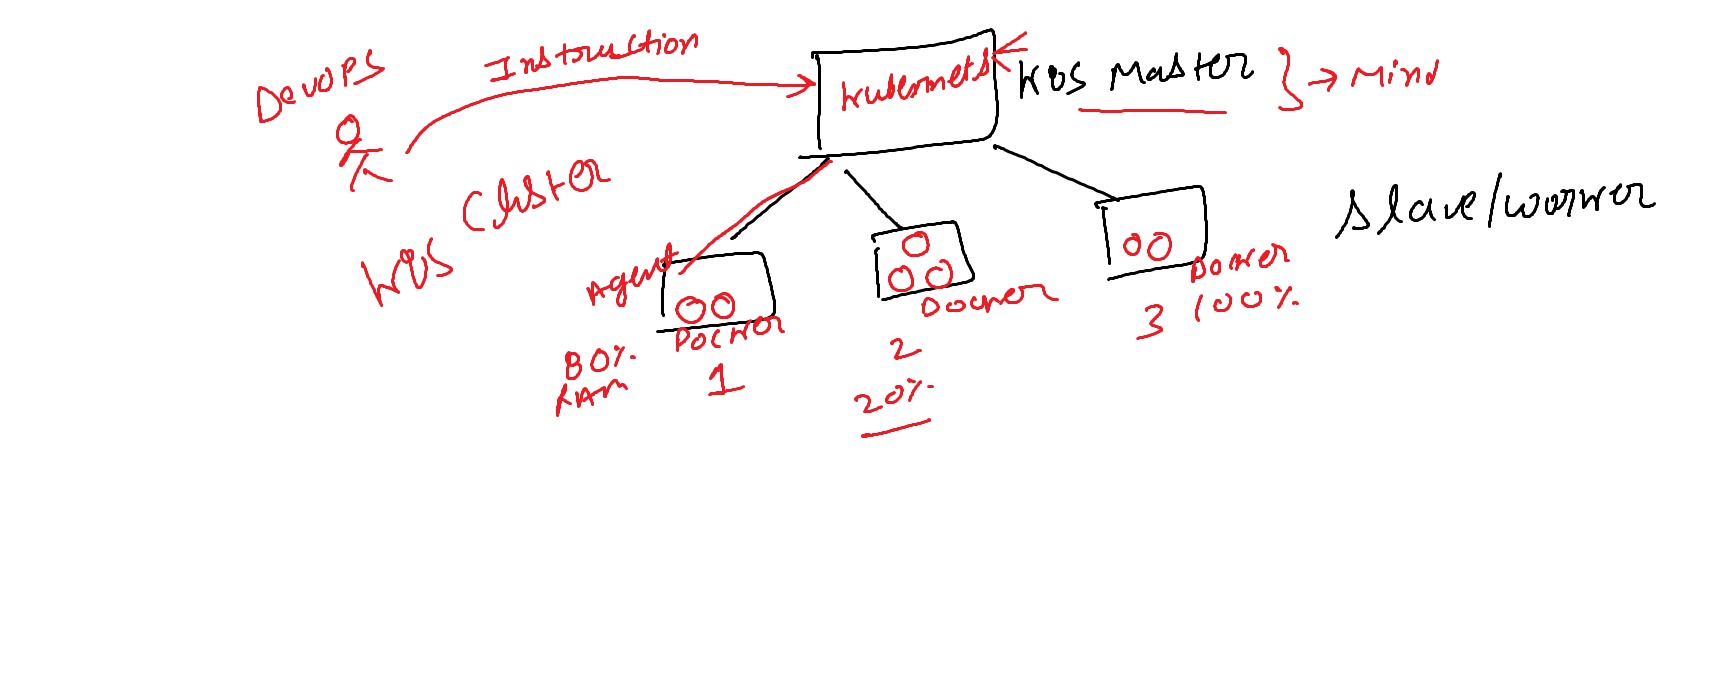 DevOPS
Instruction
kubernets
K8S Master } → Mind
K8S Cluster
Slave/worker
Agent
Docker
Docker
Docker
80%
RAM
1
2
20%
3
100%